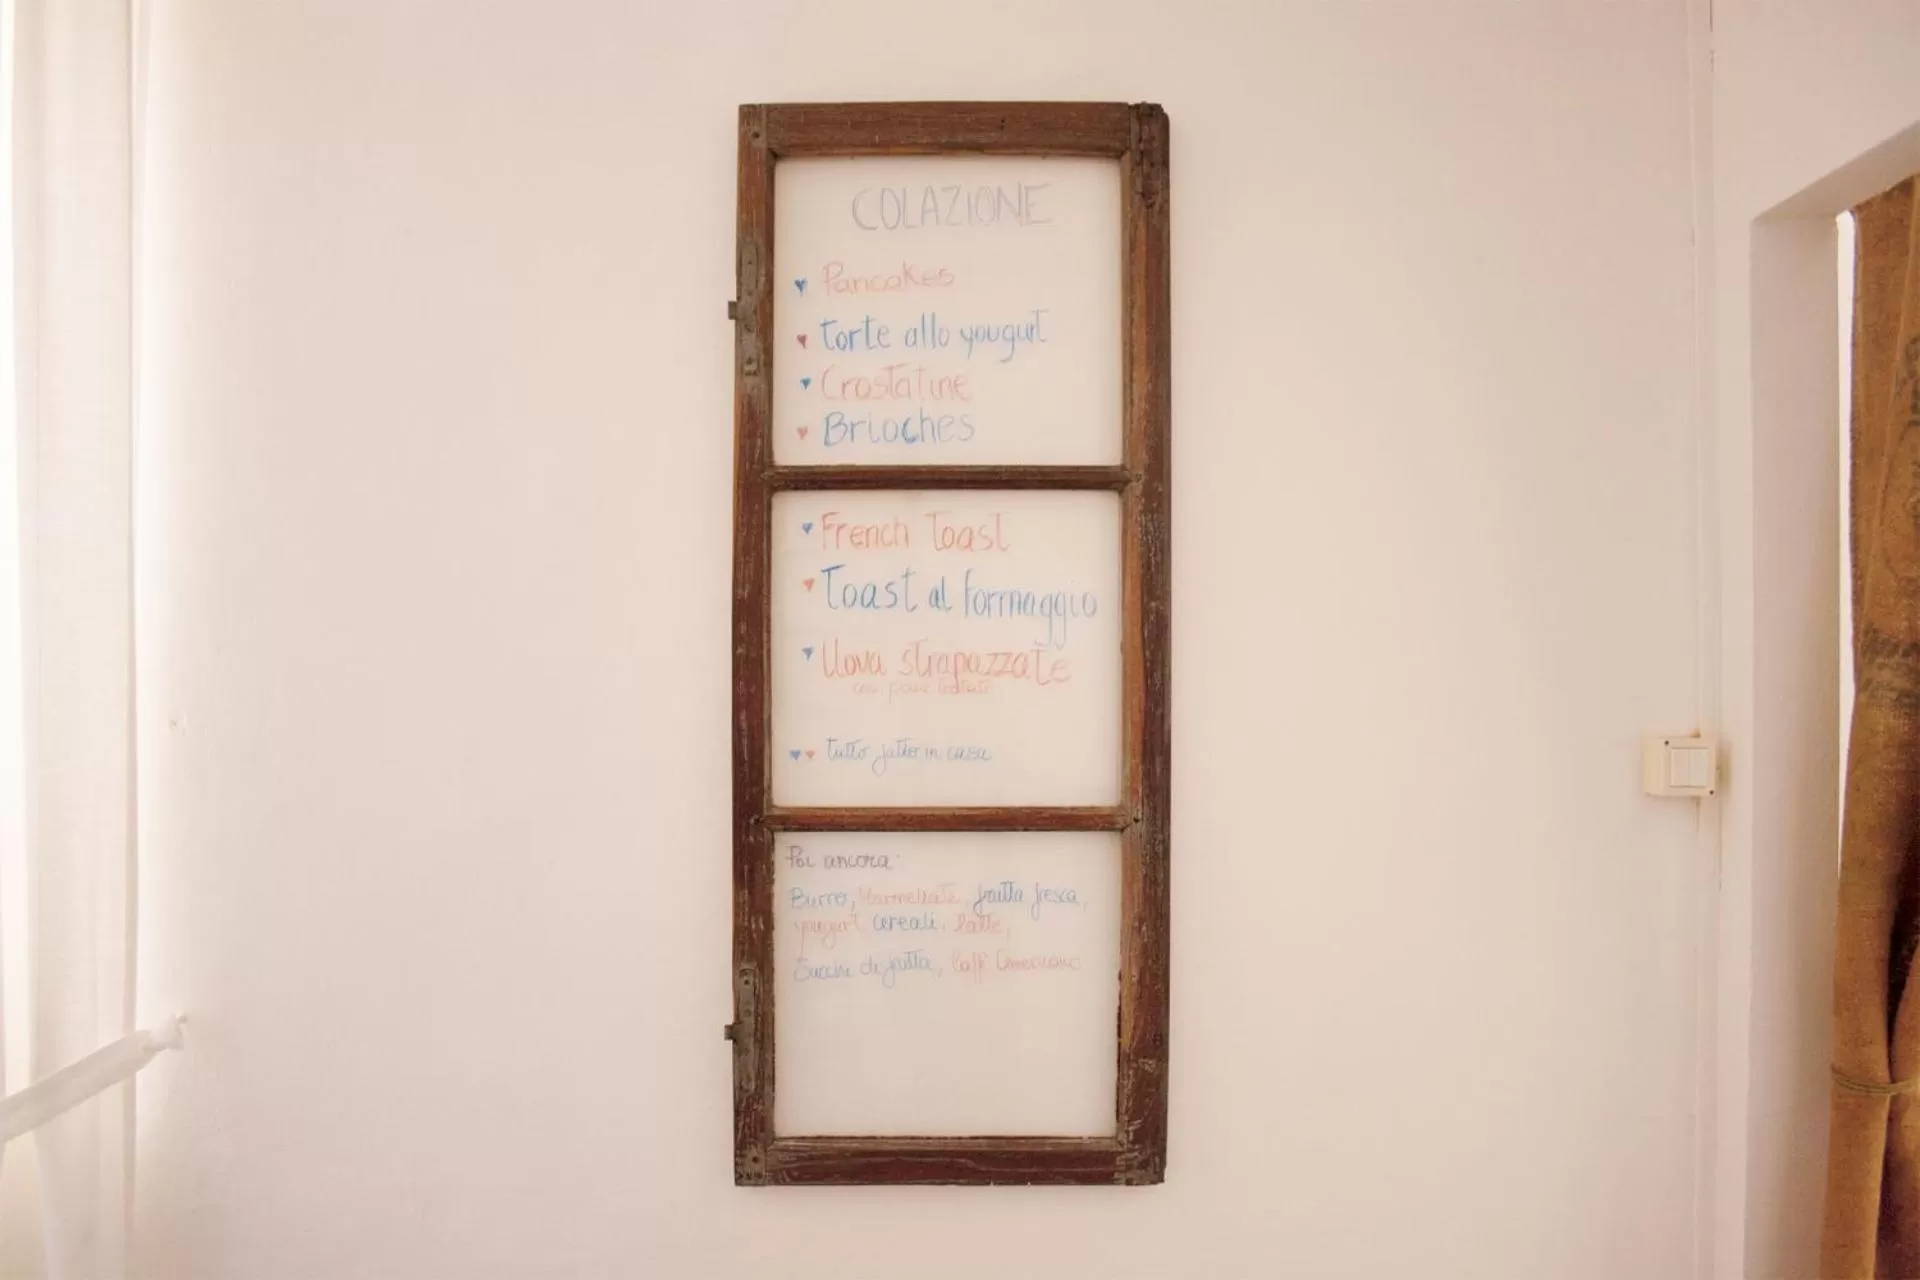 COLAZIONE
Pancakes
torte allo yougurt
Crostatine
Brioches
French toast
Toast al formaggio
Uova strapazzate
con pane tostato
tutto fatto in casa
Poi ancora:
Burro, Marmellate, frutta fresca,
yougurt cereali, latte,
Succhi di frutta, Caffè Americano